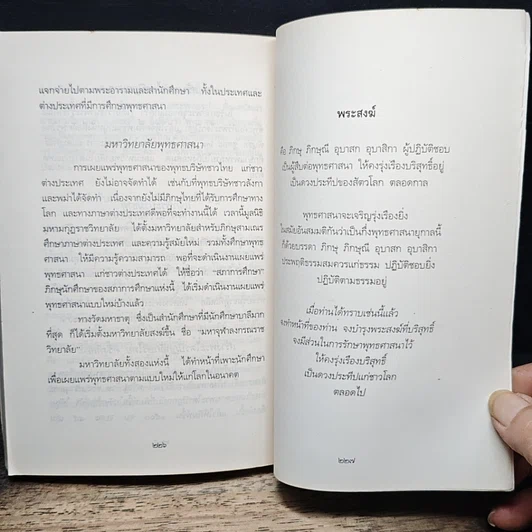 แจกจ่ายไปตามพระอารามและสำนักศึกษา ทั้งในประเทศและ
ต่างประเทศที่มีการศึกษาพุทธศาสนา
มหาวิทยาลัยพุทธศาสนา
การเผยแพร่พุทธศาสนาของพุทธบริษัทชาวไทย แก่ชาว
ต่างประเทศ ยังไม่อาจจัดทำได้ เช่นกับที่พุทธบริษัทชาวลังกา
และพม่าได้จัดทำ เนื่องจากยังไม่มีภิกษุไทยที่ได้รับการศึกษาทาง
โลก และทางภาษาต่างประเทศดีพอที่จะทำงานนี้ได้ เวลานี้มูลนิธิ
มหามกุฏราชวิทยาลัย ได้ตั้งมหาวิทยาลัยสำหรับภิกษุสามเณร
ศึกษาภาษาต่างประเทศ และความรู้สมัยใหม่ รวมทั้งศึกษาพุทธ
ศาสนา ให้มีความรู้ความสามารถ พอที่จะดำเนินงานเผยแพร่
พุทธศาสนา แก่ชาวต่างประเทศได้ ให้ชื่อว่า "สภาการศึกษา"
ภิกษุนักศึกษาของสภาการศึกษาแห่งนี้ ได้เริ่มดำเนินงานเผยแพร่
พุทธศาสนาแบบใหม่บ้างแล้ว
ทางวัดมหาธาตุ ซึ่งเป็นสำนักศึกษาที่มีนักศึกษาบาลีมาก
ที่สุด ก็ได้เริ่มตั้งมหาวิทยาลัยสงฆ์ขึ้น ชื่อ "มหาจุฬาลงกรณราช
วิทยาลัย"
มหาวิทยาลัยทั้งสองแห่งนี้ ได้ทำหน้าที่เพาะนักศึกษา
เพื่อเผยแพร่พุทธศาสนาตามแบบใหม่ให้แก่โลกในอนาคต
๒๒๖
พระสงฆ์
คือ ภิกษุ ภิกษุณี อุบาสก อุบาสิกา ผู้ปฏิบัติชอบ
เป็นผู้สืบต่อพุทธศาสนา ให้คงรุ่งเรืองบริสุทธิ์อยู่
เป็นดวงประทีปของสัตว์โลก ตลอดกาล
พุทธศาสนาจะเจริญรุ่งเรืองยิ่ง
ในสมัยอันสมมติกันว่าเป็นกึ่งพุทธศาสนายุกาลนี้
ก็ด้วยบรรดา ภิกษุ ภิกษุณี อุบาสก อุบาสิกา
ประพฤติธรรมสมควรแก่ธรรม ปฏิบัติชอบยิ่ง
ปฏิบัติตามธรรมอยู่
เมื่อท่านได้ทราบเช่นนี้แล้ว
จงทำหน้าที่ของท่าน จงบำรุงพระสงฆ์ที่บริสุทธิ์
จงมีส่วนในการรักษาพุทธศาสนาไว้
ให้คงรุ่งเรืองบริสุทธิ์
เป็นดวงประทีปแก่ชาวโลก
ตลอดไป
๒๒๗